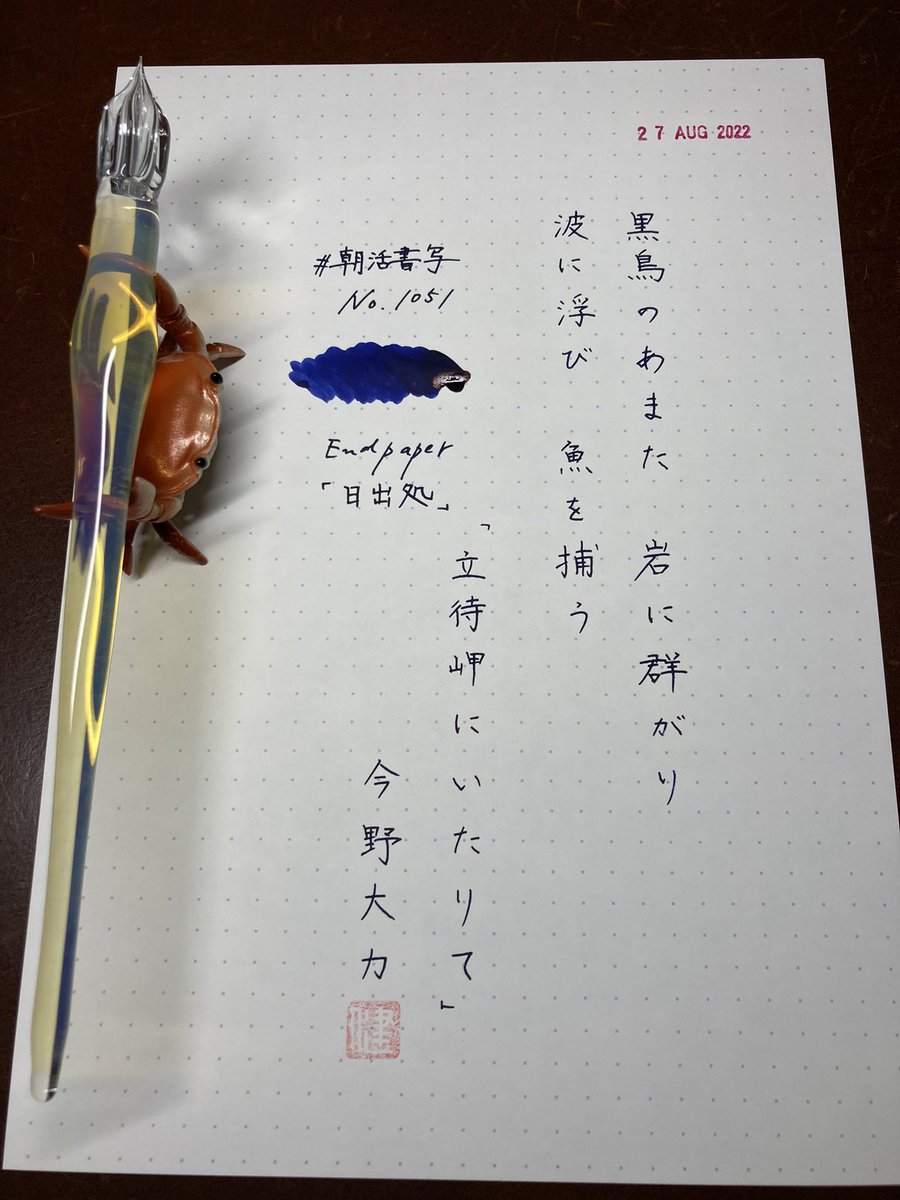 27 AUG 2022
黒鳥のあまた 岩に群がり
波に浮び 魚を捕う
「立待岬にいたりて」
今野大力
健
#朝活書写
No.1051
Endpaper
「日出処」